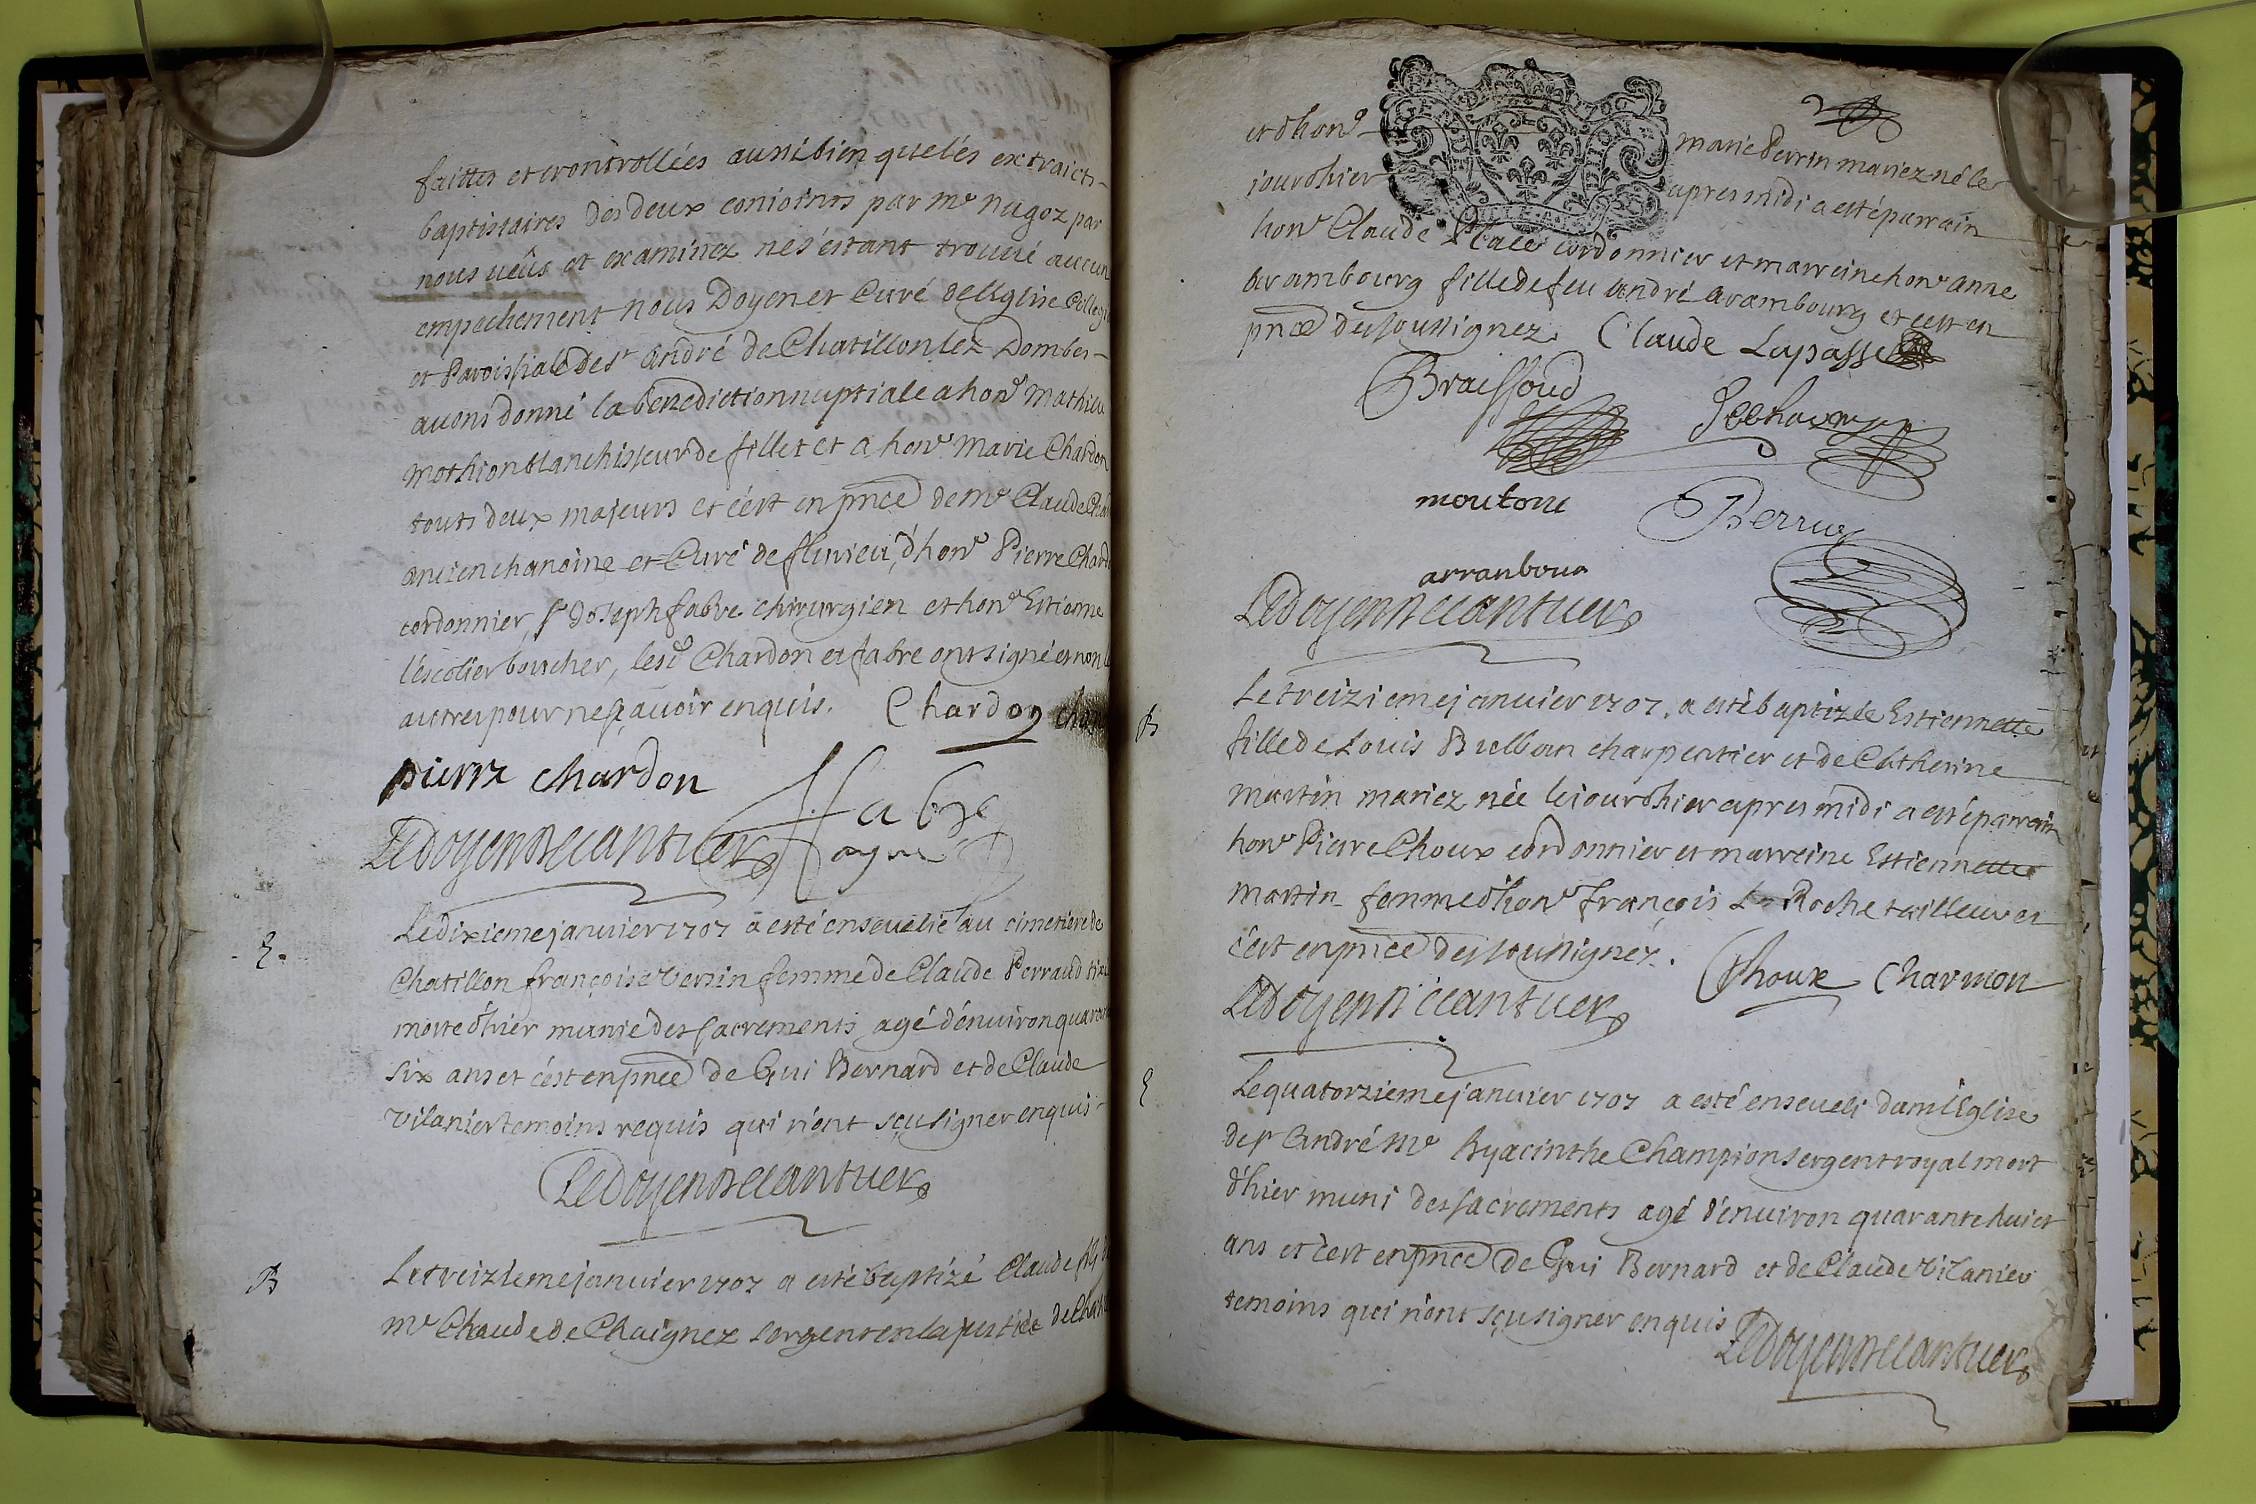 faittes et controllées aussi bien que les extraicts
baptistaires des deux conioints par Me nugoz par
nous veûs et examinez ne s'estant trouué aucun
empechement nous Doyen et Curé de l'Eglise Colleg
et Paroissiale de st André de Chatillon lez Dombes
auons donné la benediction nuptiale a hone Mathieu
mothion blanchisseur de fillet et a hone Marie Chardon
touts deux majeurs et c'est en pnce de Me Claude Cha
ancien chanoine et Curé de fluvieu, d'hone Pierre Chard
cordonnier, sr Joseph fabre chirurgien et hone Estienne
l'escolier boucher, lesd Chardon et fabre ont signé et non l
autres pour ne sçauoir enquis. Chardon
pierre chardon
fabre
Le doyen Decantuer
E.
Le dixieme januier 1707 a esté enseuelie au cimetiere de
Chatillon françoise versin femme de Claude Perraud
morte d'hier munie des sacrements agé d'enuiron quarante
six ans et c'est en pnce de Gui Bernard et de Claude
vilanier temoins requis qui n'ont sçu signer enquis
Le doyen Decantuer
B
Le treizieme januier 1707 a esté baptizé Claude fils d
Me Claude de Chaignez sergent en la justice de Chat
et d'hone marie Perrin mariez né le
jour d'hier apres midi a esté parrain
hone Claude Place cordonnier et marreine hone anne
arambourg fille de feu andré arambourg et c'est en
pnce des soussignez. Claude Lapasse
Braissoud
moutons Perrin
arranbour
Le doyen Decantuer
B
Le treizieme januier 1707. a esté baptizée Estiennette
fille de Louis Bullian charpentier et de Catherine
Martin mariez née le jour d'hier apres midi a esté parrain
hone Pierre Choux cordonnier et marreine Estiennette
Martin femme d'hone françois La Roche tailleur et
c'est en pnce des soussignez. Choux Charmon
Le doyen Decantuer
E
Le quatorzieme januier 1707 a esté enseueli dans l'Eglise
de st André Me Hyacinthe Champion sergent royal mort
d'hier muni des sacrements agé d'enuiron quarante huict
ans et c'est en pnce de Gui Bernard et de Claude vilanier
temoins qui n'ont sçu signer enquis
Le doyen Decantuer